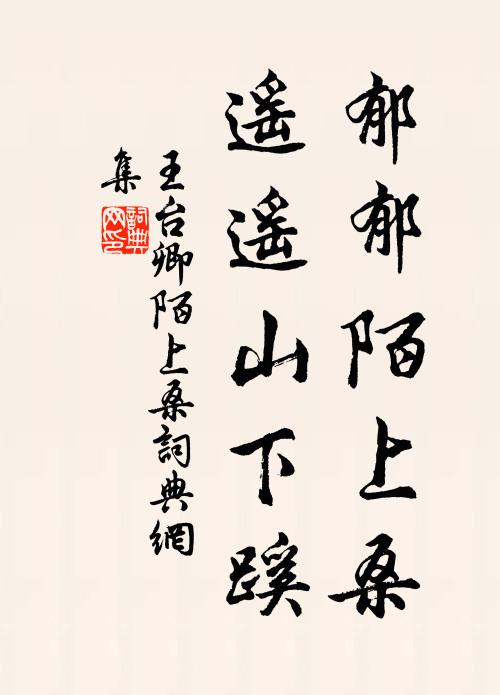 郁郁陌上桑
遥遥山下蹊
王台卿陌上桑詞典網
集
詞典网印